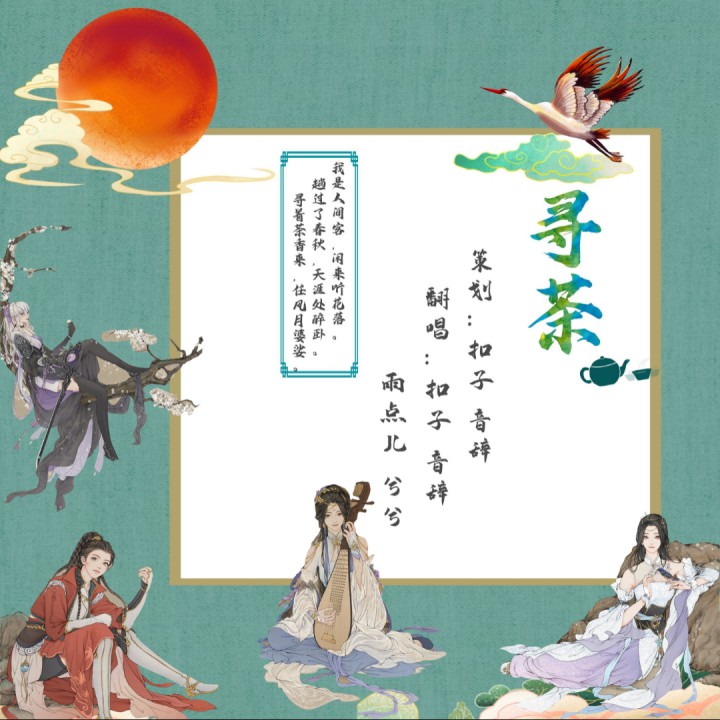 寻茶
策划：扣子 音辞
翻唱：扣子 音辞
雨点儿 兮兮
我是人间客，闲来听花落。
趟过了春秋，天涯处醉卧。
寻着茶香来，任风月婆娑。